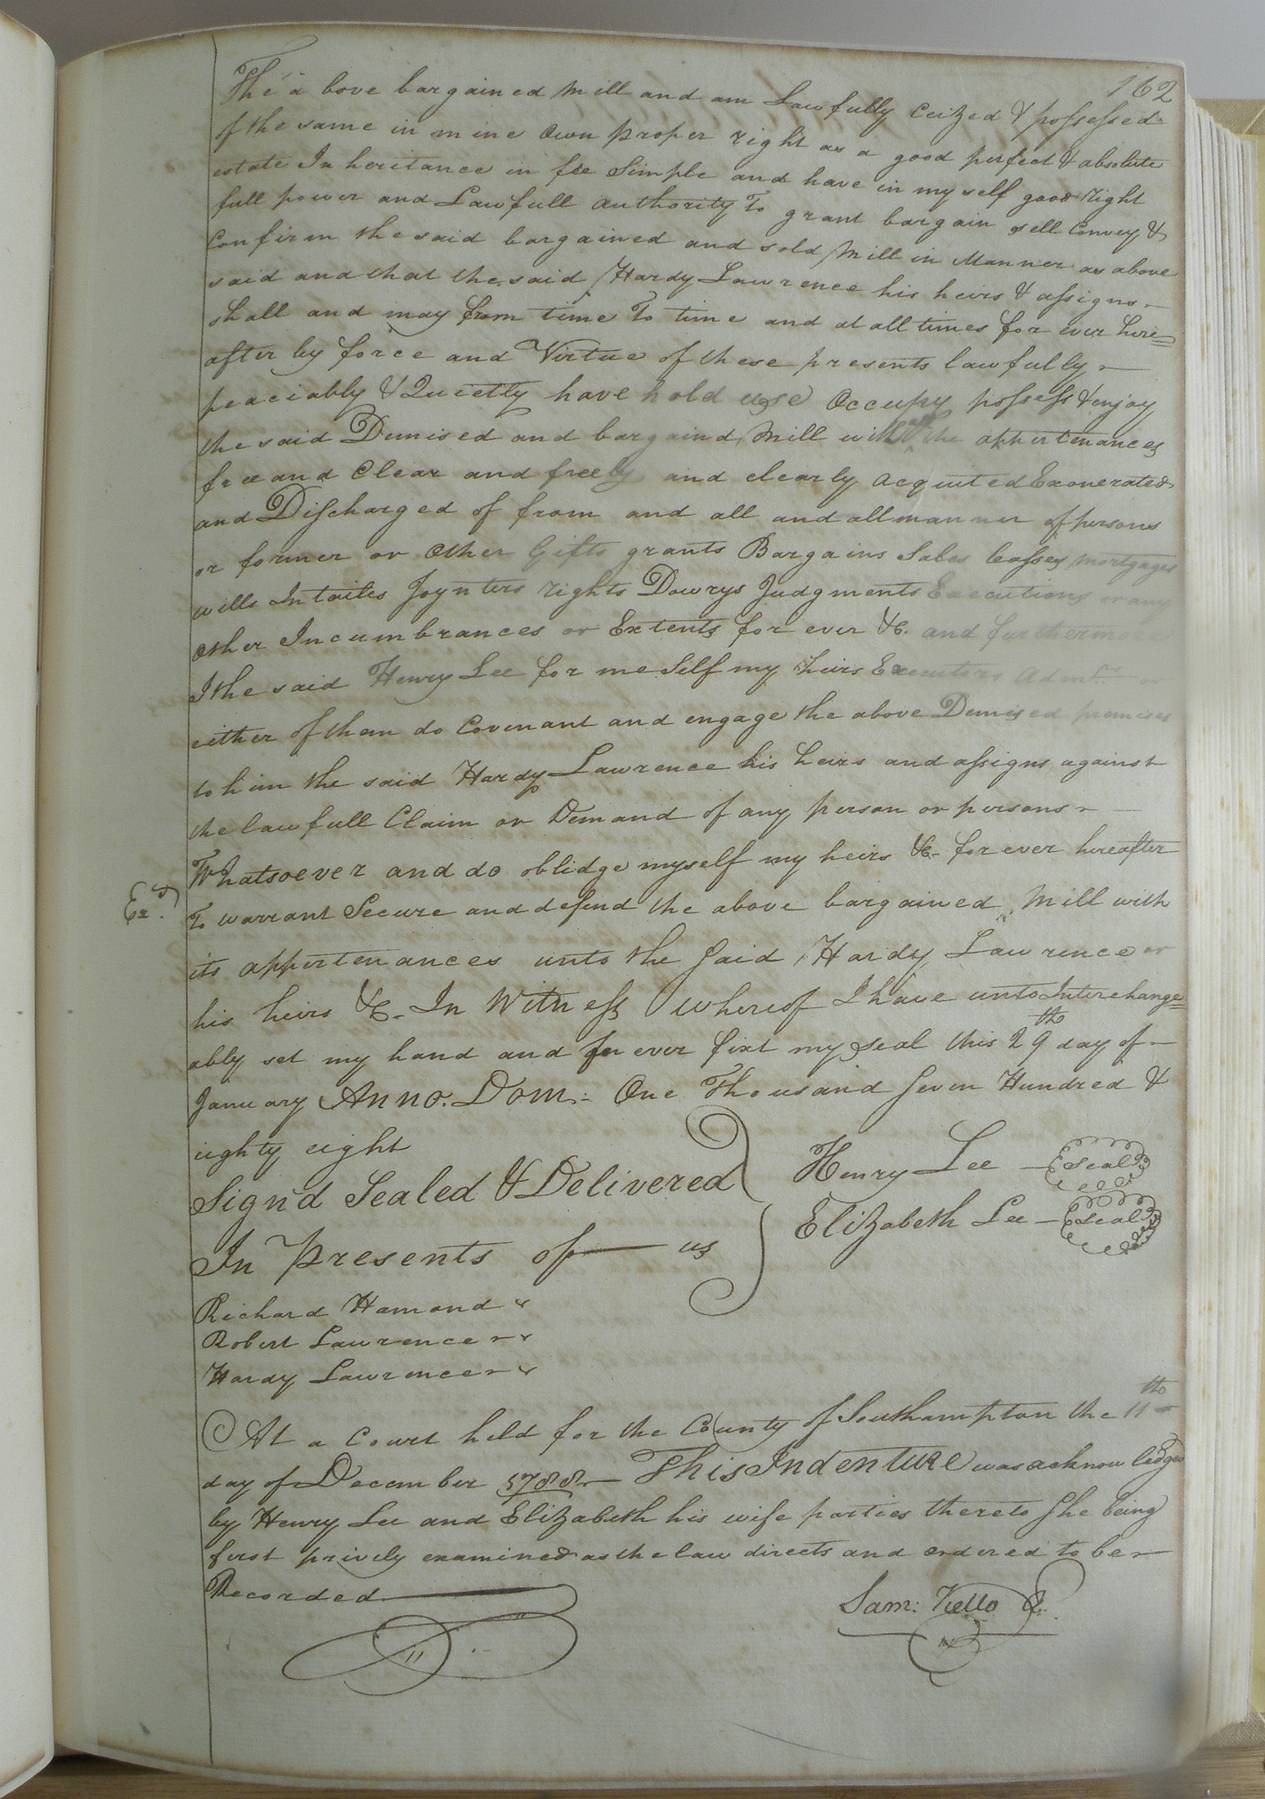 162
The a bove bargained mill and am Lawfully ceized & possessed
of the same in mine own proper right as a good perfect & absolute
estate Inheritance in fee Simple and have in my self good right
full power and Lawfull authority To grant bargain sell Convey &
Confirm the said bargained and sold Mill in Manner as above
said and that the said Hardy Lawrence his heirs & assigns
shall and may from time To time and at all times for ever here=
after by force and Virtue of these presents lawfully
peaciably & Quietly have hold use Occupy possess & enjoy
the said Demised and bargaind Mill with the appertenances
free and Clear and freely and clearly acquited Exonerated
and Discharged of from and all and all manner of persons
or former or other Gifts grants Bargains Sales leases mortgages
wills Intailes Joynters rights Dowrys Judgments Executions or any
other Incumbrances or Extents for ever &c. and furtherm
I the said Henry Lee for me Self my heirs Executors Admrs or
either of them do Covenant and engage the above Demised premises
to him the said Hardy Lawrence his heirs and assigns against
the lawfull Claim or Demand of any person or persons
Whatsoever and do oblidge myself my heirs &c. for ever hereafter
Exd.
To warrant Secure and defend the above bargained Mill with
its appertenances unto the said Hardy Lawrence or
his heirs &c. In Witness whereof I have unto Interchange=
ably set my hand and for ever fixt my seal this 29th day of
January Anno. Dom: One Thousand Seven Hundred &
eighty eight
Sign'd Sealed & Delivered
Henry Lee Seal
In Presents of us
Elizabeth Lee Seal
Richard Hamond
Robert Lawrence
Hardy Lawrence
At a Court held for the County of Southampton the 11th
day of December 1788 This Indenture was acknowledged
by Henry Lee and Elizabeth his wife parties thereto She being
first privily examined as the law directs and ordered to be
Recorded
Sam: Kello